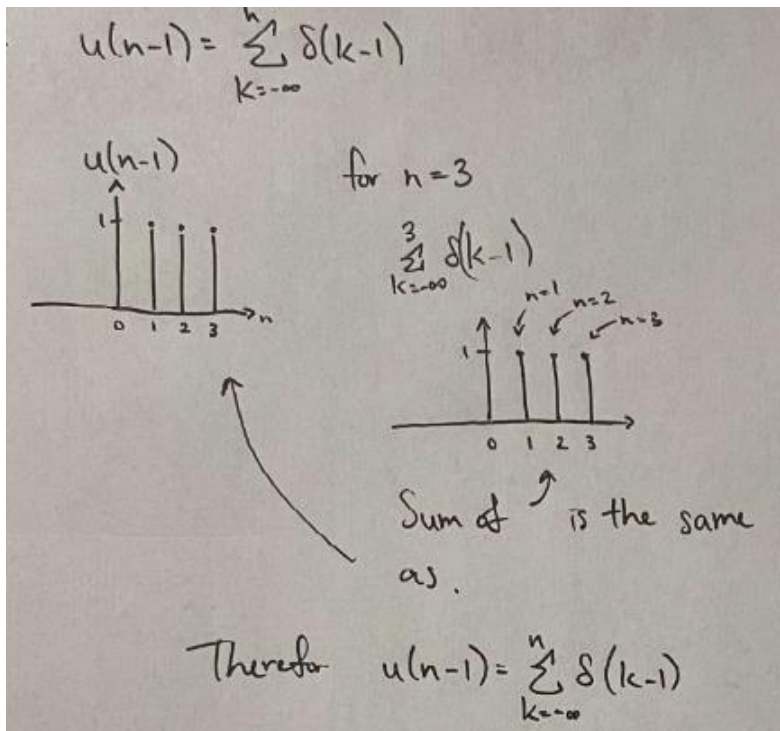 u(n-1) = Σ δ(k-1)
n
k=-∞
u(n-1)
1
0 1 2 3 n
for n=3
3
Σ δ(k-1)
k=-∞
n=1 n=2 n=3
1
0 1 2 3
Sum of is the same
as.
Therefor u(n-1) = Σ δ(k-1)
n
k=-∞